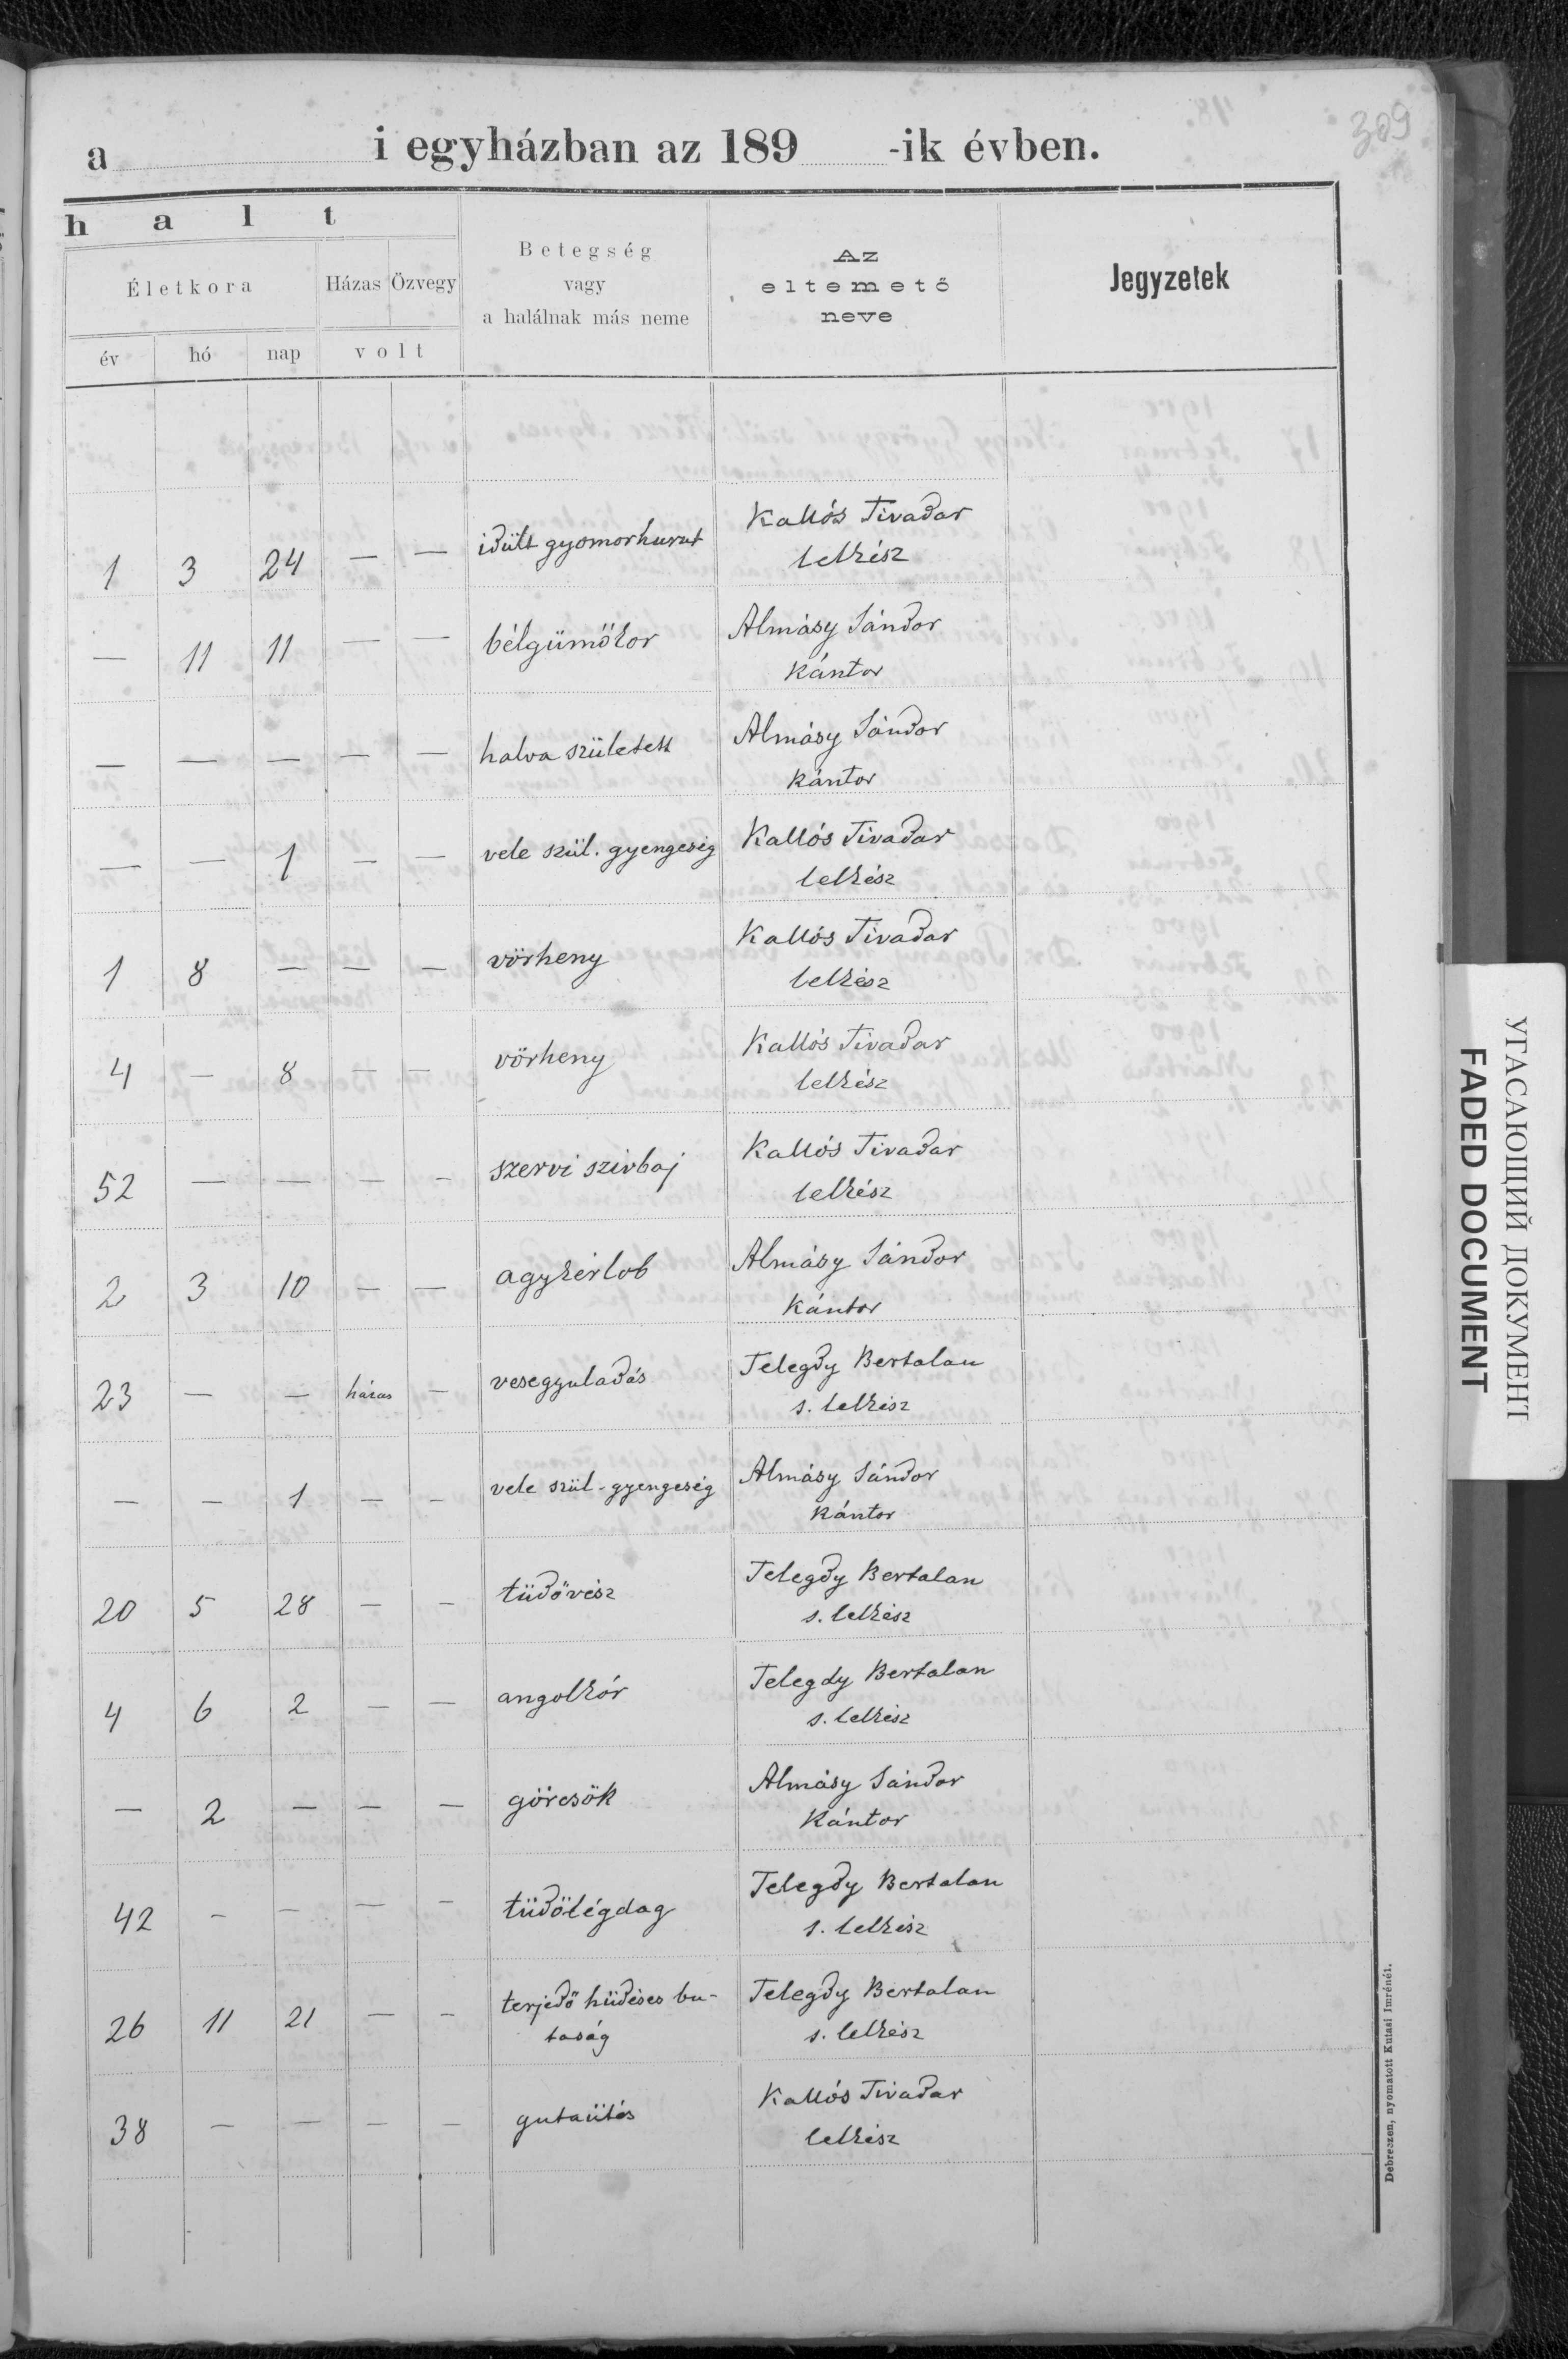 309
a i egyházban az 189 -ik évben.
h a l t
Életkora
Házas Özvegy
Betegség
vagy
a halálnak más neme
Az
eltemető
neve
Jegyzetek
év hó nap volt
1 3 24 — — idült gyomorhurut Kallós Tivadar
lelkész
— 11 11 — — bélgümőkor Almásy Sándor
kántor
— — — — — halva született Almásy Sándor
kántor
— — 1 — — vele szül. gyengeség Kallós Tivadar
lelkész
1 8 — — — vörheny Kallós Tivadar
lelkész
4 — 8 — — vörheny Kallós Tivadar
lelkész
52 — — — — szervi szivbaj Kallós Tivadar
lelkész
2 3 10 — — agykérlob Almásy Sándor
kántor
23 — — házas — vesegyuladás Telegdy Bertalan
s. lelkész
— — 1 — — vele szül. gyengeség Almásy Sándor
kántor
20 5 28 — — tüdővész Telegdy Bertalan
s. lelkész
4 6 2 — — angolkór Telegdy Bertalan
s. lelkész
— 2 — — — görcsök Almásy Sándor
kántor
42 — — — — tüdőlégdag Telegdy Bertalan
s. lelkész
26 11 21 — — terjedő hüdéses bu- Telegdy Bertalan
taság s. lelkész
38 — — — — gutaütés Kallós Tivadar
lelkész
Debreczen, nyomatott Kutasi Imrénél.
УГАСАЮЩИЙ ДОКУМЕНТ
FADED DOCUMENT